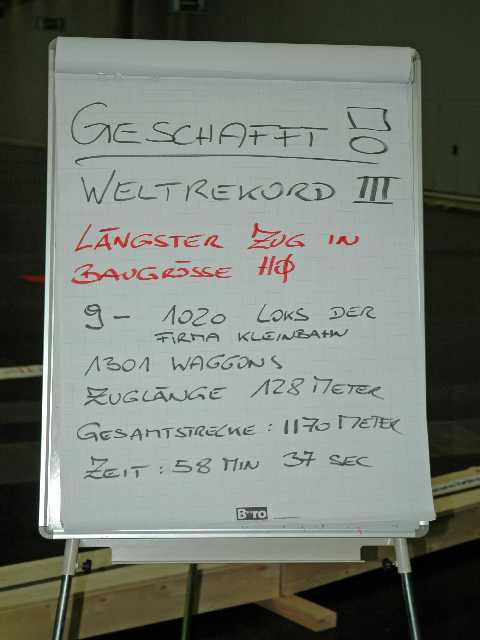 GESCHAFFT !
WELTREKORD !!!
LÄNGSTER ZUG IN
BAUGRÖSSE HØ
9 - 1020 LOKS DER
FIRMA KLEINBAHN
1301 WAGGONS
ZUGLÄNGE 128 METER
GESAMTSTRECKE : 1170 METER
ZEIT : 58 MIN 37 SEC